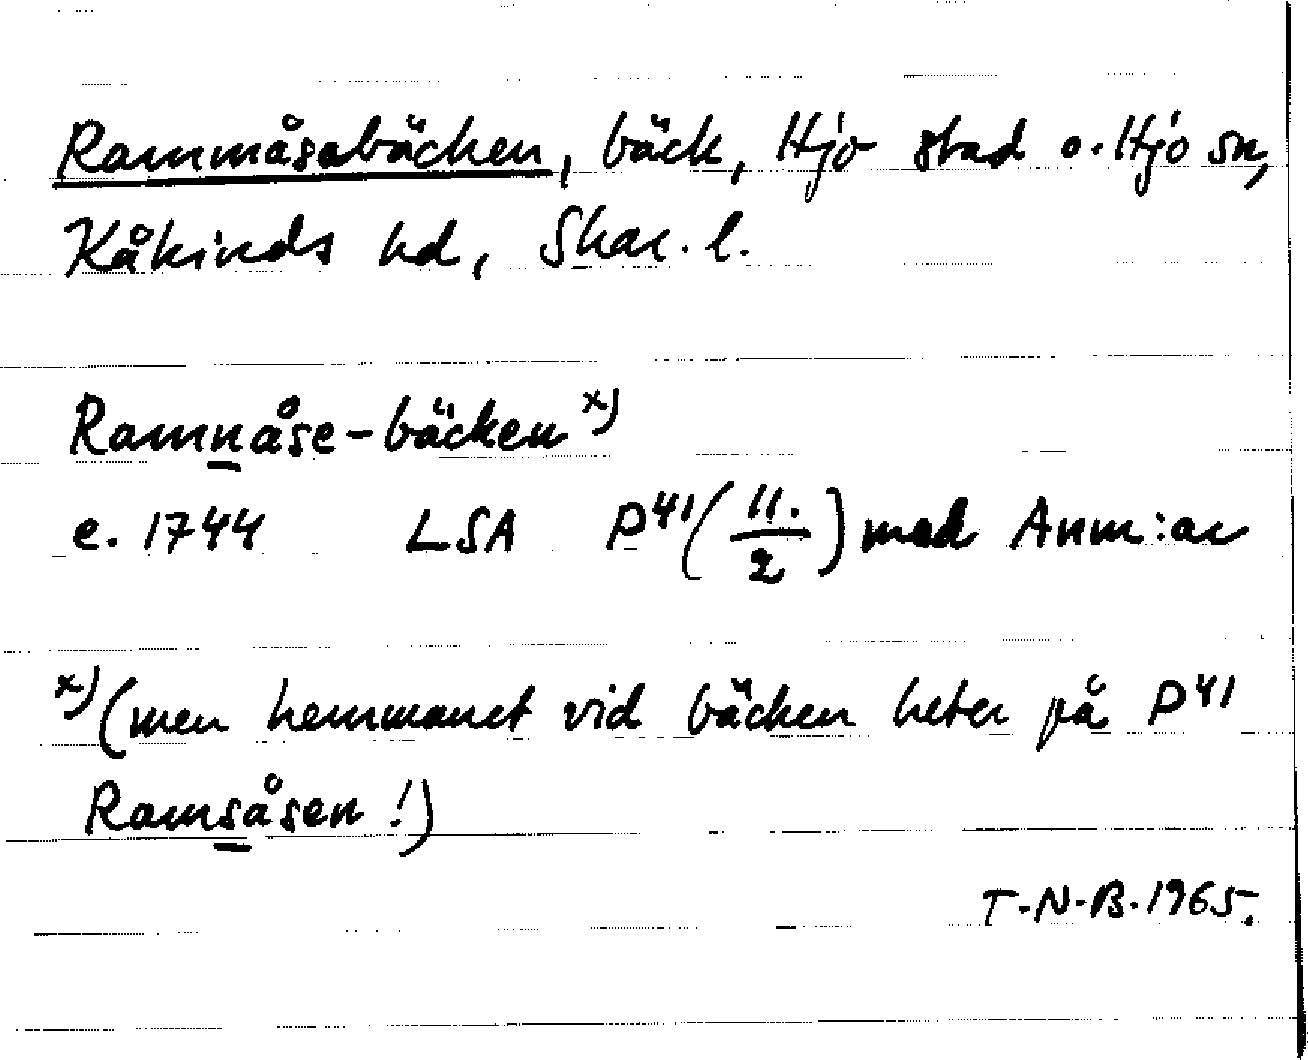 Rammåsabäcken, bäck, Hjo stad o. Hjo sn,
Kåkinds hd, Skar. l.
Ramnåse-bäcken x)
e. 1744 LSA P41 (11./2) med Anm:ar
x) (men hemmanet vid bäcken heter på P41
Ramsåsen!)
T.N.B. 1965.